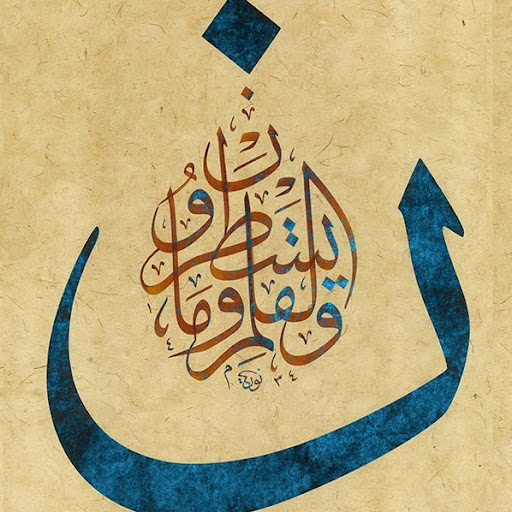 ن
والقلم وما
يسطرون